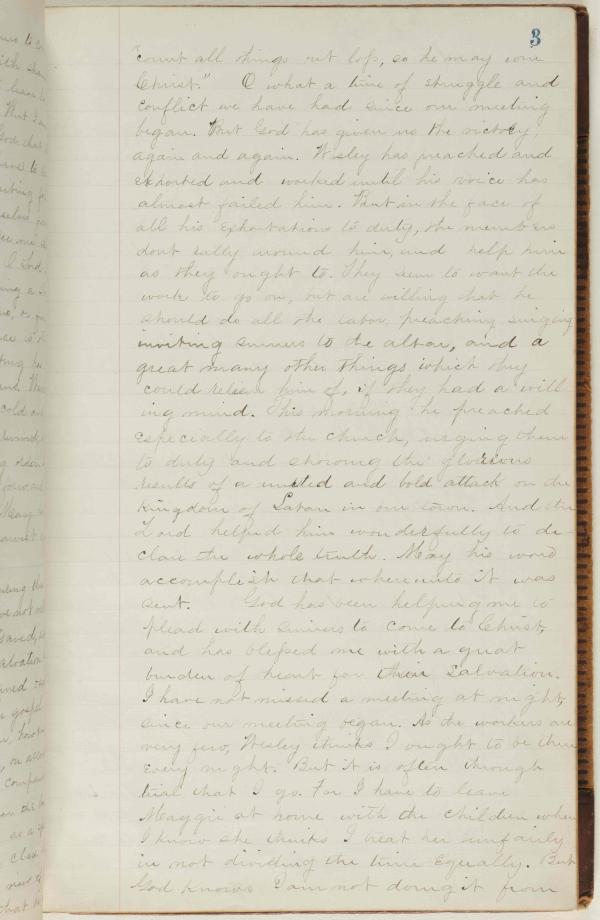 3
"count all things but loss, so he may win
Christ." O what a time of struggle and
conflict we have had since our meeting
began. But God has given us the victory,
again and again. Wesley has preached and
exhorted and worked until his voice has
almost failed him. But in the face of
all his exhortations to duty, the members
dont rally around him, and help him
as they ought to. They seem to want the
work to go on, but are willing that he
should do all the labor, preaching singing
inviting sinners to the altar, and a
great many other things which they
could relieve him of, if they had a will
ing mind. This morning he preached
especially to the church, urging them
to duty and showing the glorious
results of a united and bold attack on the
kingdom of Satan in our town. And the
Lord helped him wonderfully to de-
clare the whole truth. May his word
accomplish that whereunto it was
sent. God has been helping me to
plead with sinners to come to Christ,
and has blessed me with a great
burden of heart for their salvation.
I have not missed a meeting at night,
since our meeting began. As the workers are
very few, Wesley thinks I ought to be there
every night. But it is often through
trial that I go. For I have to leave
Maggie at home with the children when
I know she thinks I treat her unfairly
in not dividing the time equally. But
God knows I am not doing it from